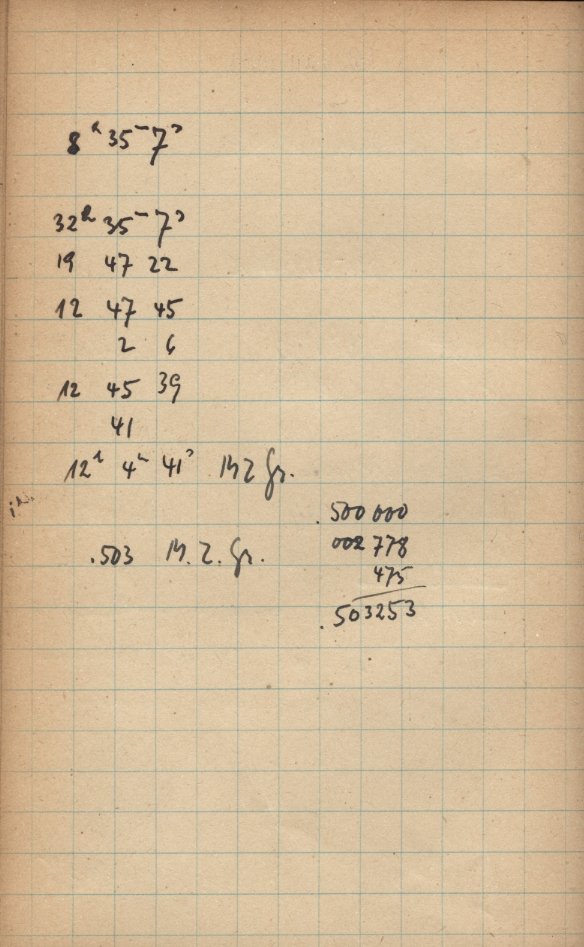 8h 35m 7s
32h 35m 7s
19 47 22
12 47 45
2 6
12 45 39
41
12h 4m 41s M Z Gr.
.500 000
002 778
475
.503253
.503 M. Z. Gr.